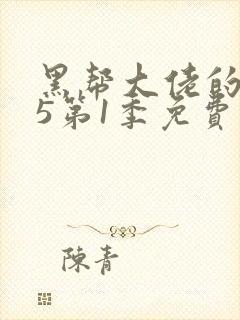 黑帮大佬的
5第1季免費
陳青